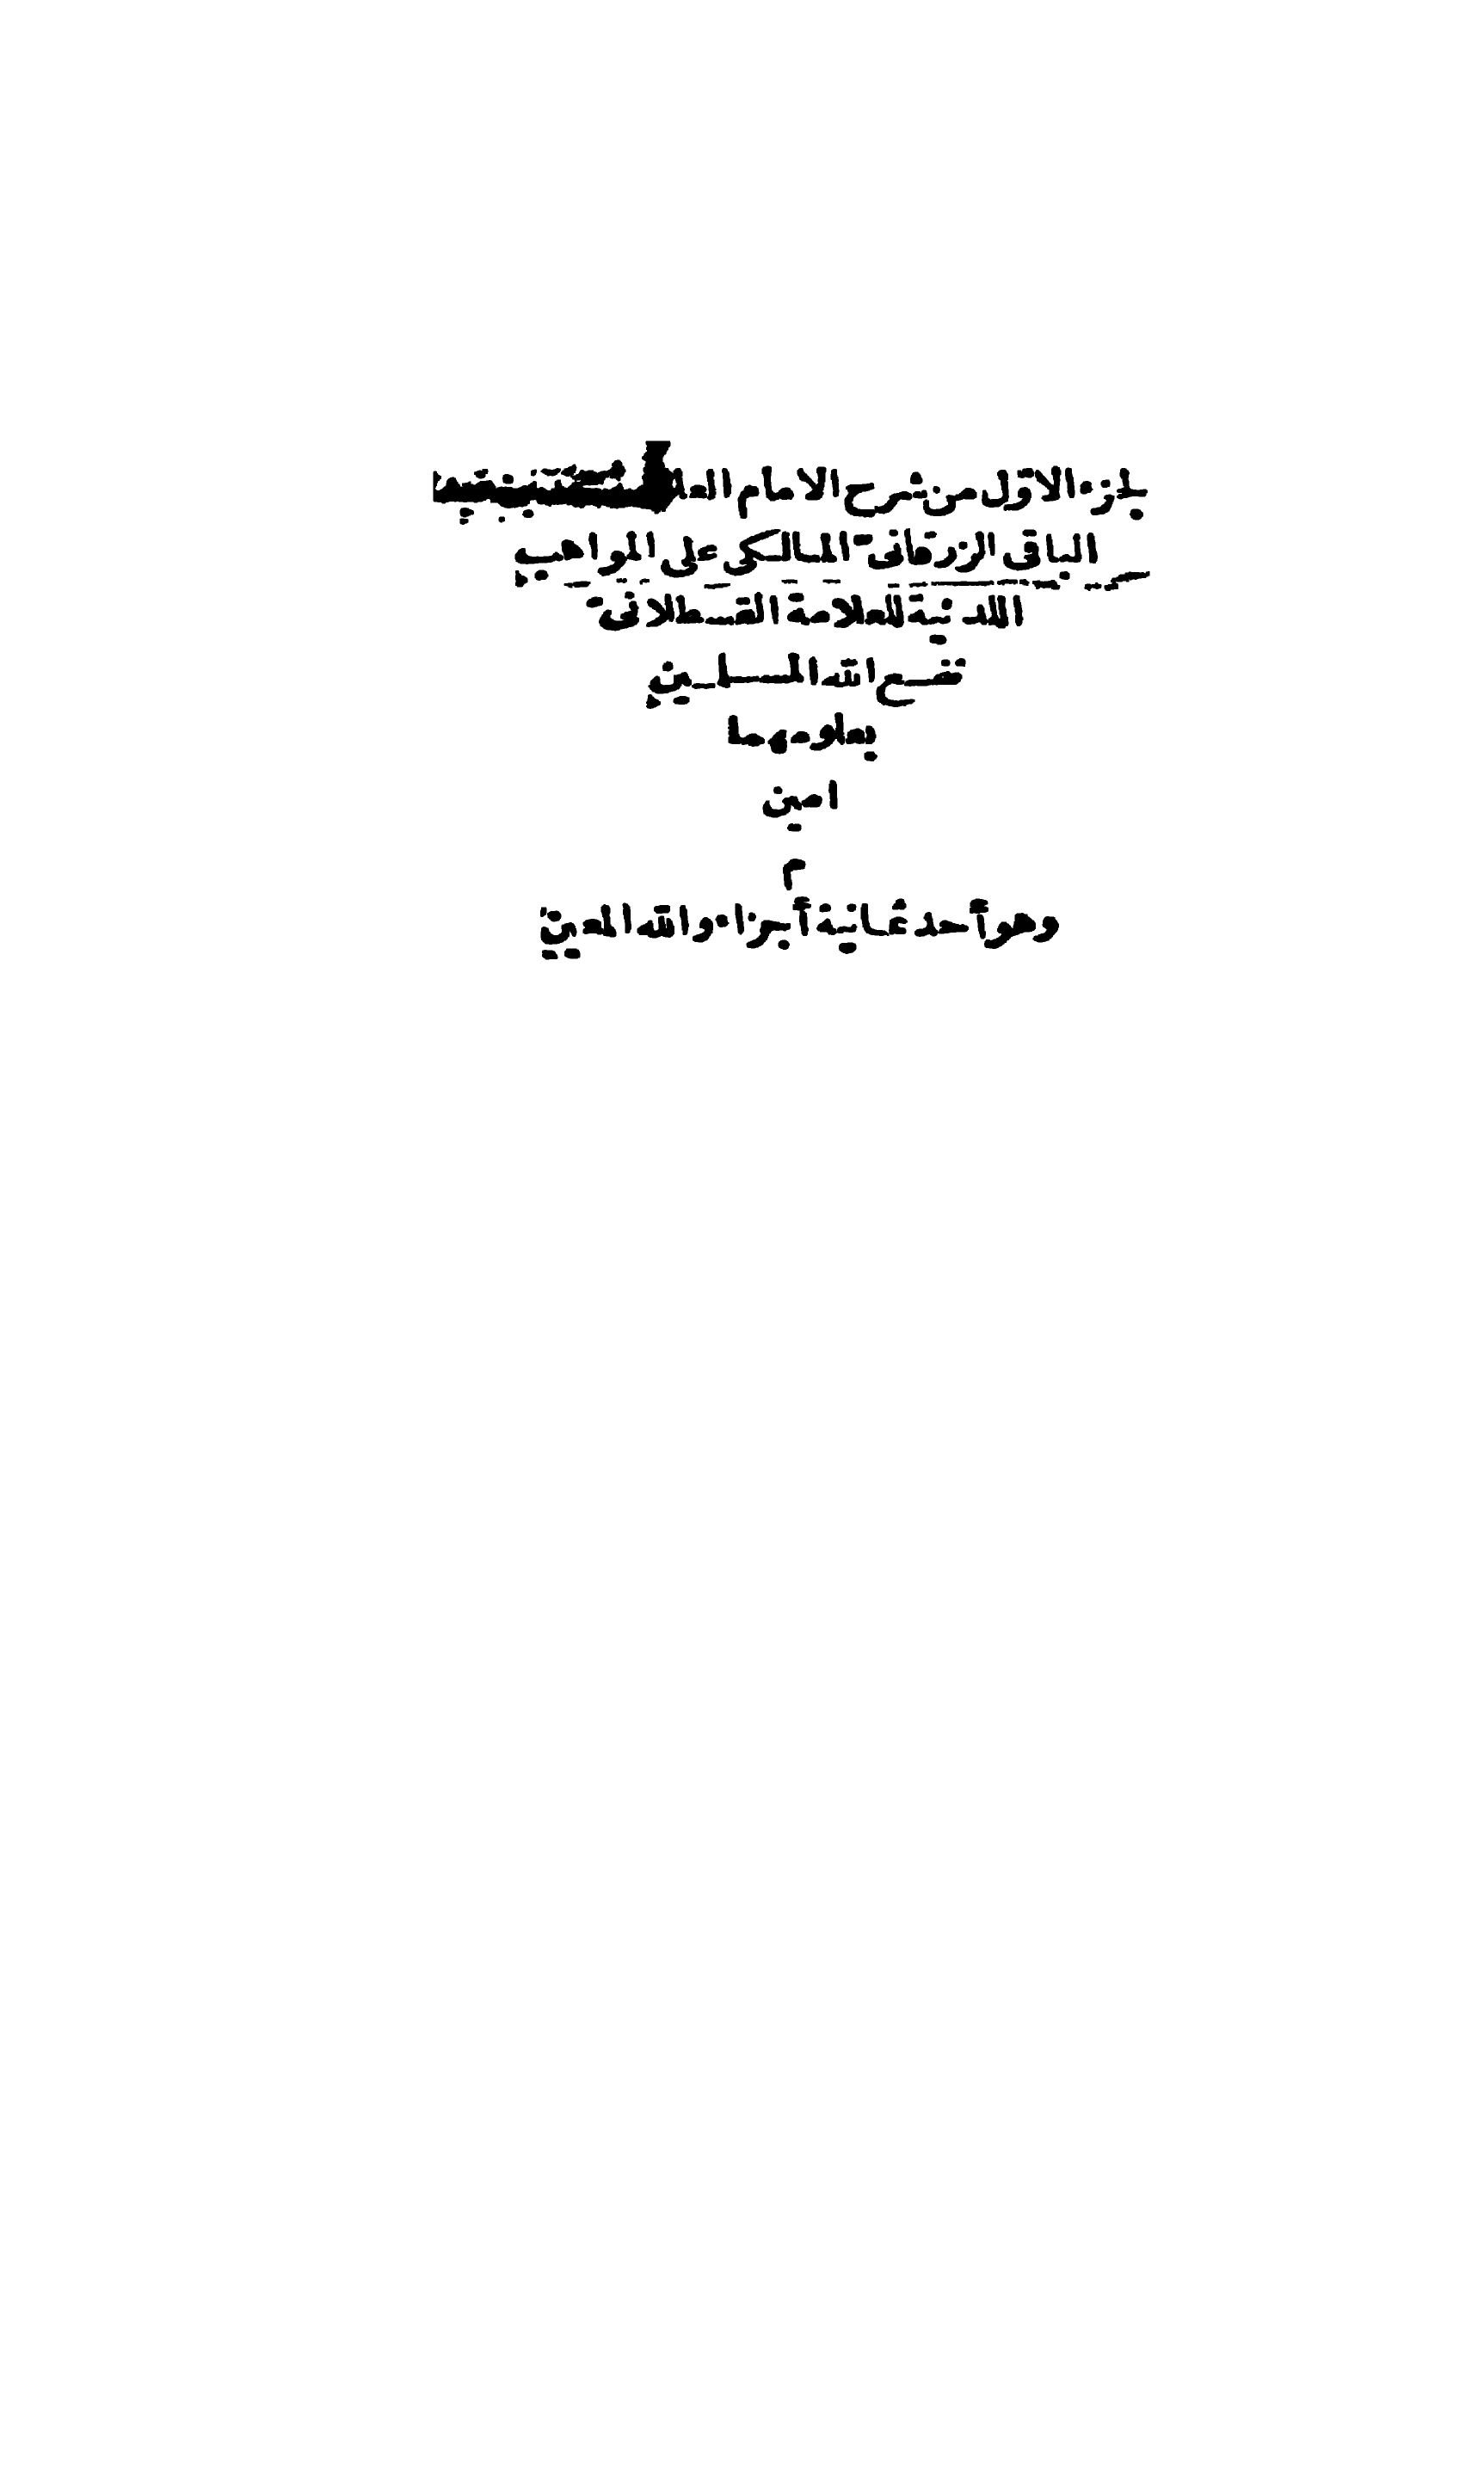 الجزء الاوّل من شرح الامام العلا
الباقى الزرقانىّ المالكى على المواهب
اللدنية للعلامة القسطلانىّ
نفع الله المسلمين
بعلومهما
امين
م
وهو أحد ثمانية أجزاء والله المعين